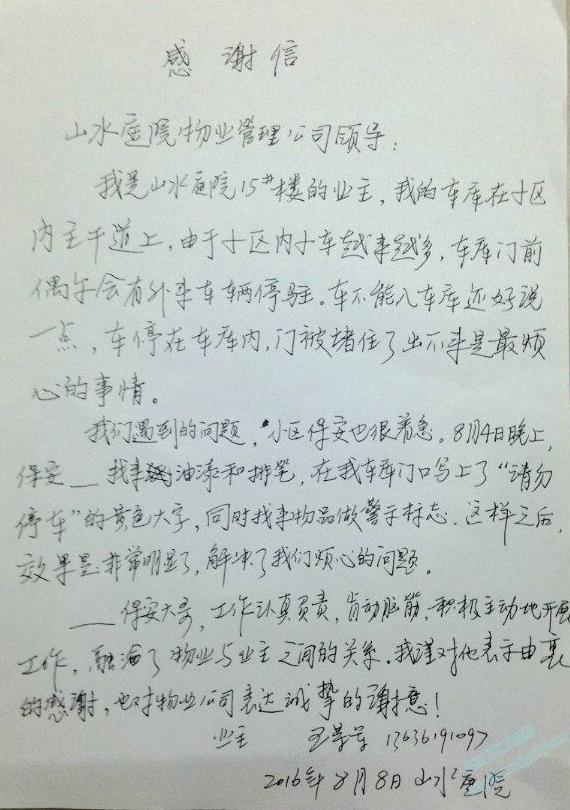 感谢信
山水庭院物业管理公司领导：
我是山水庭院15#楼的业主，我的车库在小区
内主干道上，由于小区内小车越来越多，车库门前
偶尔会有外来车辆停驻。车不能入车库还好说
一点，车停在车库内，门被堵住了出不来是最烦
心的事情。
我们遇到的问题，小区保安也很着急。8月4日晚上，
保安__找来油漆和排笔，在我车库门口写上了“请勿
停车”的黄色大字，同时找来物品做警示标志。这样之后，
效果是非常明显了，解决了我们烦心的问题。
__保安大哥，工作认真负责，肯动脑筋，积极主动地开展
工作，融洽了物业与业主之间的关系。我谨对他表示由衷
的感谢，也对物业公司表达诚挚的谢意！
业主 王 13636191097
2016年8月8日 山水庭院